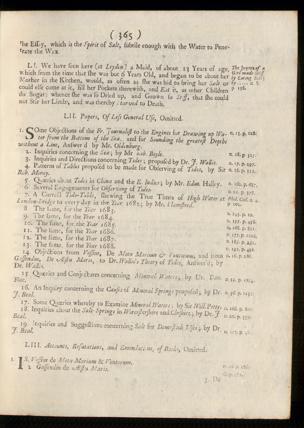 ( 365 )
the Essay, which is the Spirit of Salt, subtile enough with the Water to Pene-
trate the Wax.
LI. We have seen here (at Leyden) a Maid, of about 23 Years of age,
which from the time that she was but 6 Years Old, and began to be about her
Mother in the Kitchen, would, as often as she was bid to bring her Salt or
could else come at it, fill her Pockets therewith, and Eat it, as other Children
do Sugar: whence she was so Dried up, and Grown so Stiff, that she could
not Stir her Limbs, and was thereby starved to Death.
LII. Papers, Of Less General Use, Omitted.
1. Some Objections of the Fr. Journalist to the Engines for Drawing up Wa-
ter from the Bottom of the Sea, and for Sounding the greatest Depths
without a Line, Answer'd by Mr. Oldenburg.
2. Inquiries concerning the Sea; by Mr. Rob. Boyle.
3. Inquiries and Directions concerning Tides; proposed by Dr. J. Wallis.
4. Patterns of Tables proposed to be made for Observing of Tides, by Sir
Rob. Moray.
5. Queries about Tides in China and the E. Indies; by Mr. Edm. Halley.
6. Several Engagements for Observing of Tides.
7. A Correct Tide-Table, shewing the True Times of High Water at
London-bridge to every day in the Year 1683; by Mr. Flamsteed.
8. The same, for the Year 1683.
9. The same, for the Year 1684.
10. The same, for the Year 1685.
11. The same, for the Year 1686.
12. The same, for the Year 1687.
13. The same, for the Year 1688.
14. Objections from Vossius, De Motu Marium & Ventorum, and from
Gassendus, De Æstu Maris, to Dr. Wallis's Theory of Tides, Answer'd; by
Dr. Wallis.
15. Queries and Conjectures concerning Mineral Waters; by Dr. Dan.
Fuot.
16. An Inquiry concerning the Causes of Mineral Springs proposed; by Dr.
J. Beal.
17. Some Queries whereby to Examine Mineral Waters; by Sir Will. Petty.
18. Inquiries about the Salt-Springs in Worcestershire and Cheshire; by Dr. J.
Beal.
19. Inquiries and Suggestions concerning Salt for Domestick Uses; by Dr.
J. Beal.
LIII. Accounts, Refutations, and Emendations, of Books, Omitted.
1. Is. Vossius de Motu Marium & Ventorum.
2. Gassendus de Æstu Maris.